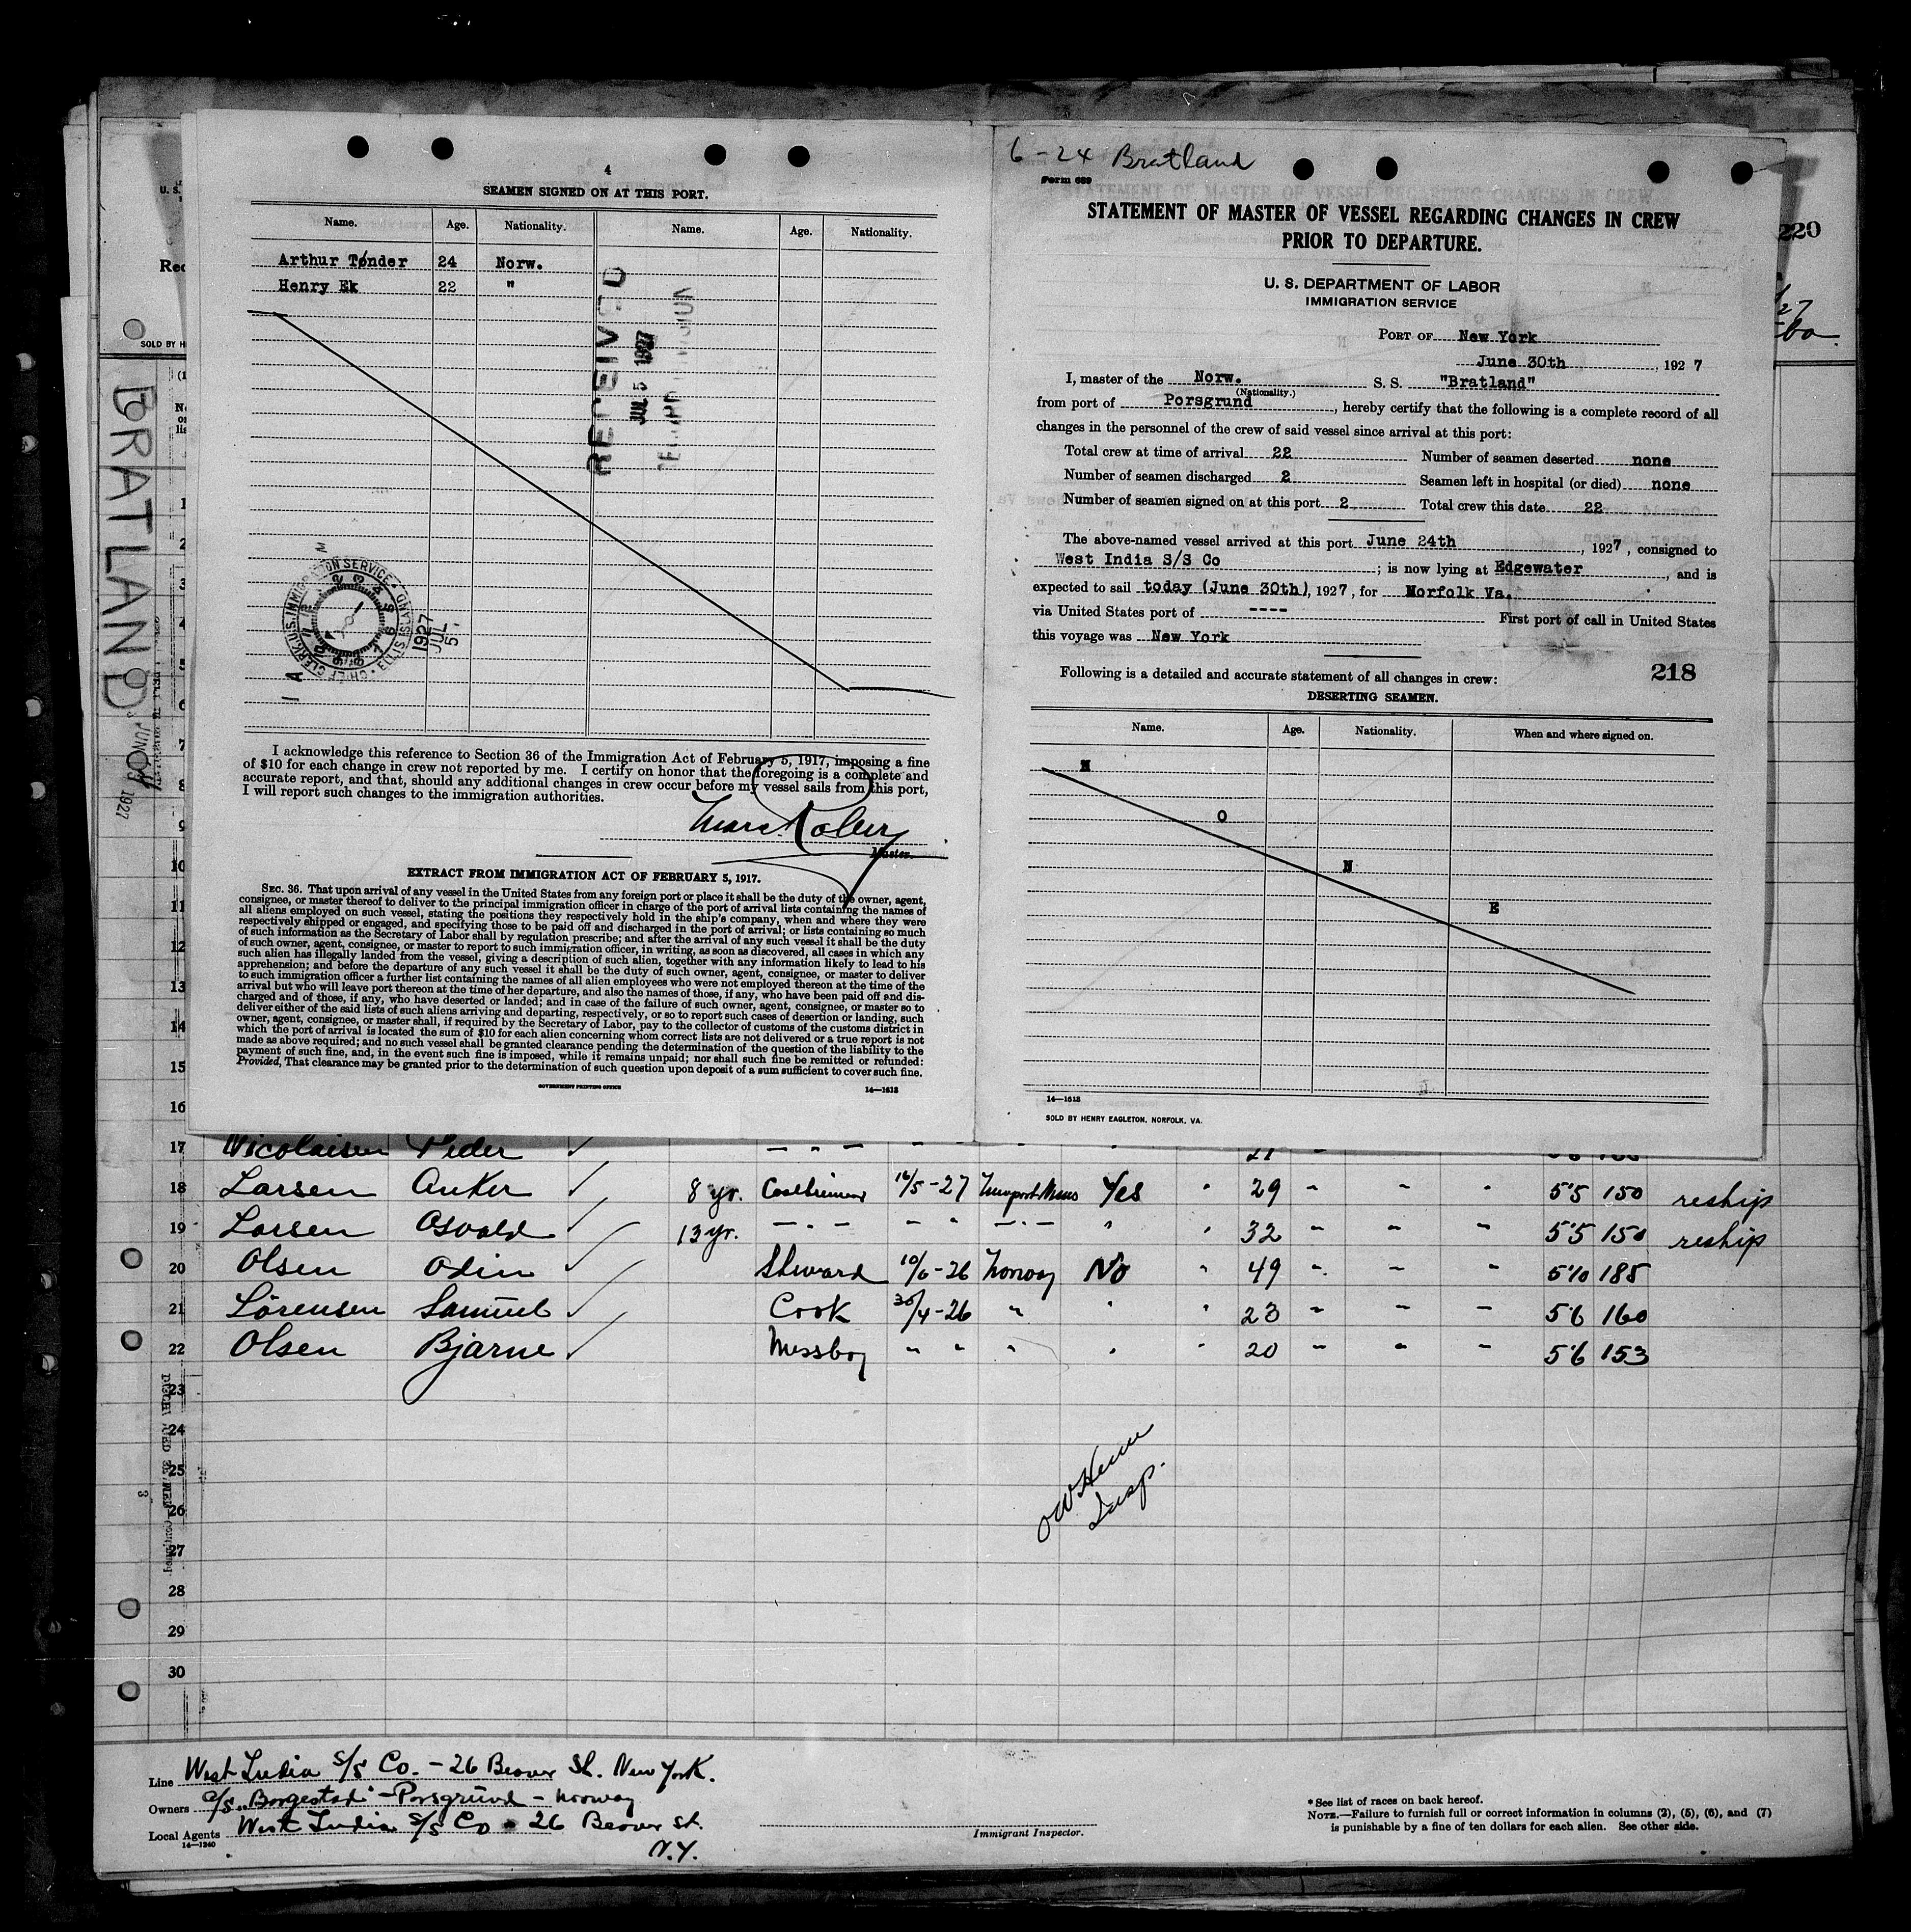 4
SEAMEN SIGNED ON AT THIS PORT.
Name. Age. Nationality. Name. Age. Nationality.
Arthur Tønder 24 Norw.
Henry Ek 22 "
RECEIVED
JUL 5 1927
U.S. IMMIGRATION SERVICE
CHIEF CLERK
ELLIS ISLAND
1927
JUL
5
I acknowledge this reference to Section 36 of the Immigration Act of February 5, 1917, imposing a fine
of $10 for each change in crew not reported by me. I certify on honor that the foregoing is a complete and
accurate report, and that, should any additional changes in crew occur before my vessel sails from this port,
I will report such changes to the immigration authorities.
Master.
EXTRACT FROM IMMIGRATION ACT OF FEBRUARY 5, 1917.
SEC. 36. That upon arrival of any vessel in the United States from any foreign port or place it shall be the duty of the owner, agent,
consignee, or master thereof to deliver to the principal immigration officer in charge of the port of arrival lists containing the names of
all aliens employed on such vessel, stating the positions they respectively hold in the ship's company, when and where they were
respectively shipped or engaged, and specifying those to be paid off and discharged in the port of arrival; or lists containing so much
of such information as the Secretary of Labor shall by regulation prescribe; and after the arrival of any such vessel it shall be the duty
of such owner, agent, consignee, or master to report to such immigration officer, in writing, as soon as discovered, all cases in which any
such alien has illegally landed from the vessel, giving a description of such alien, together with any information likely to lead to his
apprehension; and before the departure of any such vessel it shall be the duty of such owner, agent, consignee, or master to deliver
to such immigration officer a further list containing the names of all alien employees who were not employed thereon at the time of the
arrival but who will leave port thereon at the time of her departure, and also the names of those, if any, who have been paid off and dis-
charged and of those, if any, who have deserted or landed; and in case of the failure of such owner, agent, consignee, or master so to
deliver either of the said lists of such aliens arriving and departing, respectively, or so to report such cases of desertion or landing, such
owner, agent, consignee, or master shall, if required by the Secretary of Labor, pay to the collector of customs of the customs district in
which the port of arrival is located the sum of $10 for each alien concerning whom correct lists are not delivered or a true report is not
made as above required; and no such vessel shall be granted clearance pending the determination of the question of the liability to the
payment of such fine, and, in the event such fine is imposed, while it remains unpaid; nor shall such fine be remitted or refunded:
Provided, That clearance may be granted prior to the determination of such question upon deposit of a sum sufficient to cover such fine.
GOVERNMENT PRINTING OFFICE 14—1613
6-24 Bratland
Form 689
STATEMENT OF MASTER OF VESSEL REGARDING CHANGES IN CREW
PRIOR TO DEPARTURE.
U. S. DEPARTMENT OF LABOR
IMMIGRATION SERVICE
PORT OF New York
June 30th, 1927
I, master of the Norw. S. S. "Bratland"
(Nationality.)
from port of Porsgrund, hereby certify that the following is a complete record of all
changes in the personnel of the crew of said vessel since arrival at this port:
Total crew at time of arrival 22 Number of seamen deserted none
Number of seamen discharged 2 Seamen left in hospital (or died) none
Number of seamen signed on at this port 2 Total crew this date 22
The above-named vessel arrived at this port June 24th, 1927, consigned to
West India S/S Co; is now lying at Edgewater, and is
expected to sail today (June 30th), 1927, for Norfolk Va.
via United States port of ---- First port of call in United States
this voyage was New York
218
Following is a detailed and accurate statement of all changes in crew:
DESERTING SEAMEN.
Name. Age. Nationality. When and where signed on.
N
O
N
E
14—1613
SOLD BY HENRY EAGLETON, NORFOLK, VA.
220
U. S.
SOLD BY H
BRATLAND
JUN 1927
1
2
3
4
5
6
7
8
9
10
11
12
13
14
15
16
17 Nicolaisen Peder 21
18 Larsen Anker 8 yr. 16/5-27 Newport News Yes " 29 " " " 5'5 150 reship
19 Larsen Osvald 13 yr. " " " " " 32 " " " 5'5 150 reship
20 Olsen Odin Steward 10/6-26 Norway No " 49 " " " 5'10 185
21 Sørensen Samuel Cook 30/4-26 " " " 23 " " " 5'6 160
22 Olsen Bjarne Messboy " " " " " 20 " " " 5'6 153
23
24
25
26
27
28
29
30
Insp.
Line West India S/S Co. - 26 Beaver St. New York.
Owners A/S. Borgestad - Porsgrund - Norway
Local Agents West India S/S Co - 26 Beaver St.
N.Y.
14—1240
Immigrant Inspector.
* See list of races on back hereof.
NOTE.—Failure to furnish full or correct information in columns (2), (5), (6), and (7)
is punishable by a fine of ten dollars for each alien. See other side.